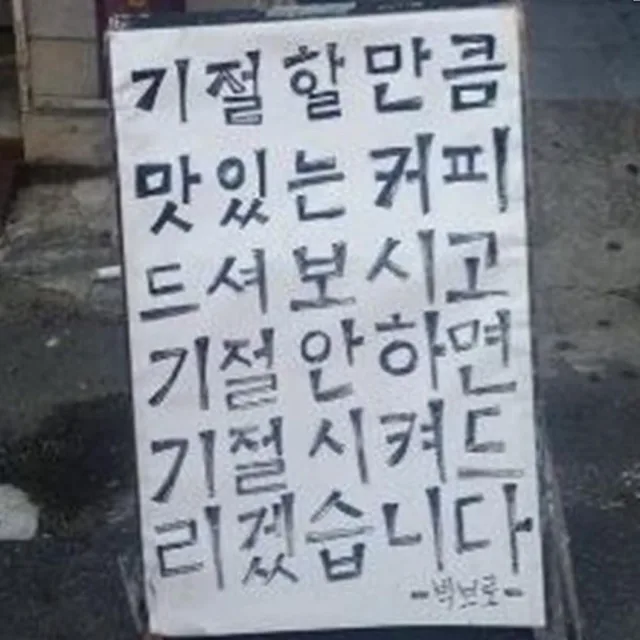 기절할만큼
맛있는 커피
드셔 보시고
기절 안하면
기절시켜드
리겠습니다